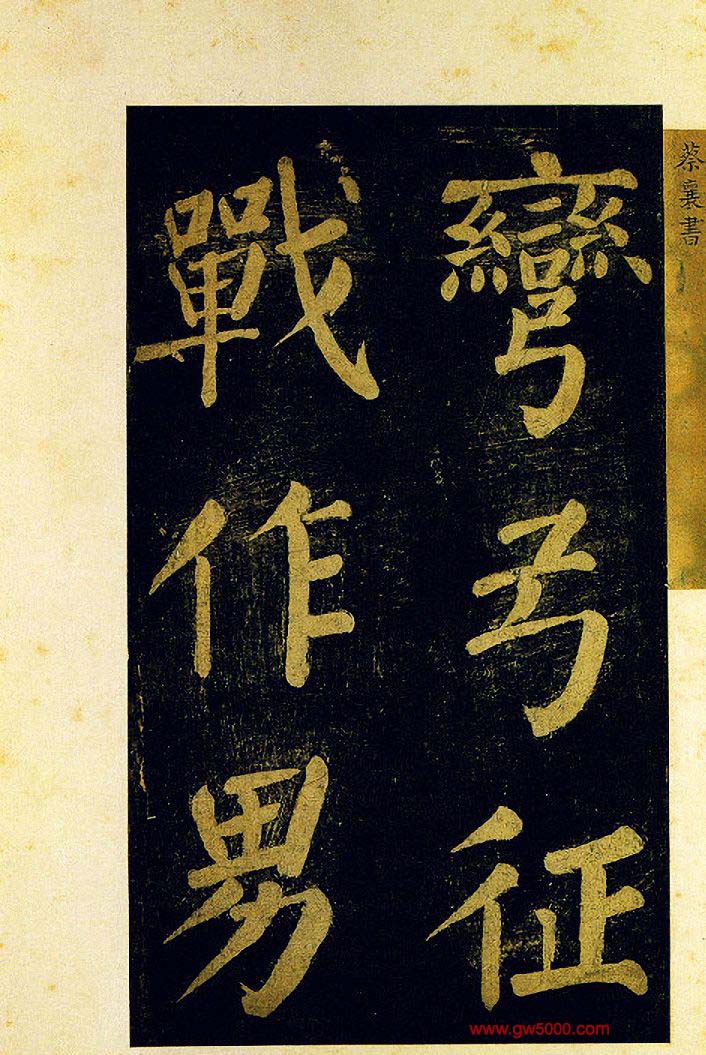 蔡襄書
彎弓征
戰作男
www.gw5000.com